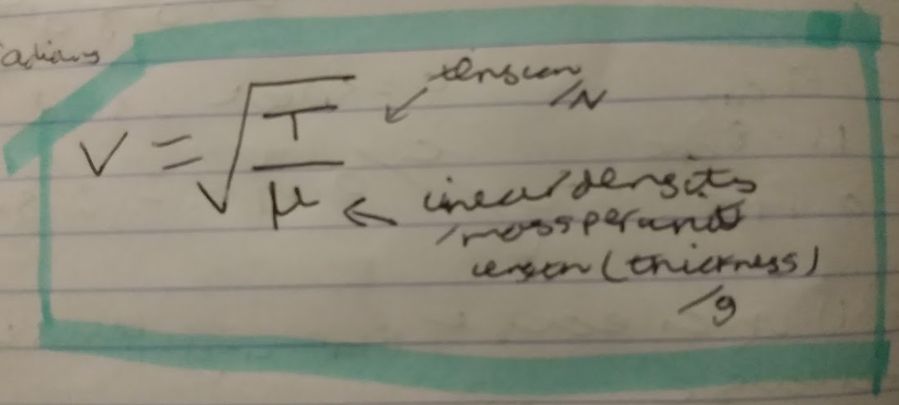 radians
tension
/N
V = √(T/μ)
linear density
/mass per unit
length (thickness)
/g